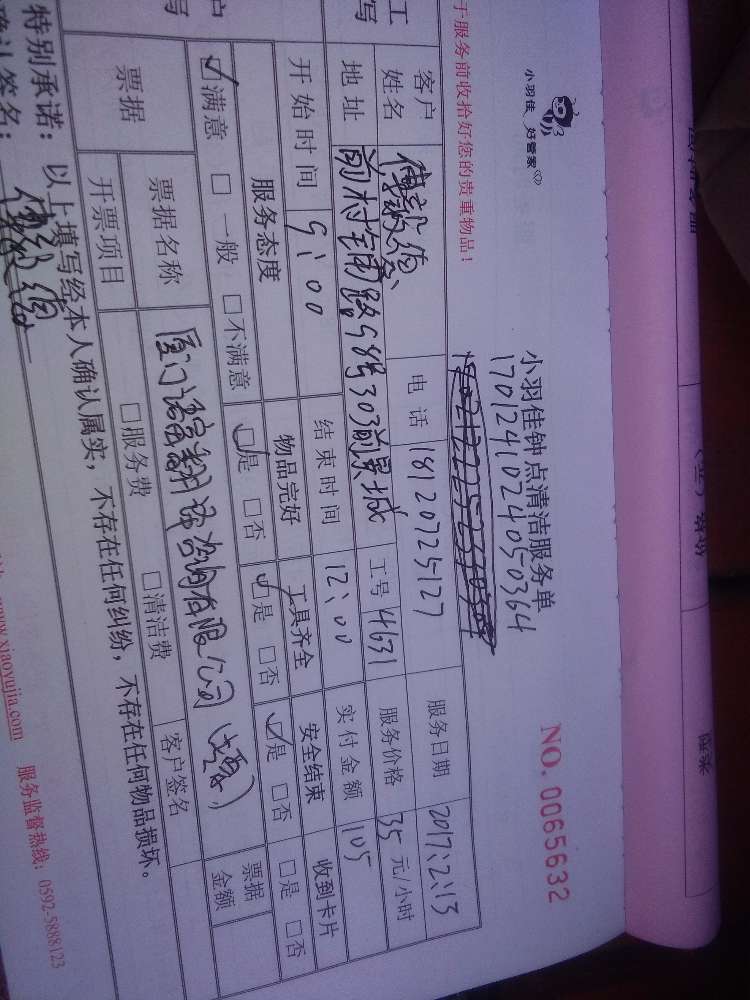 小羽佳 好管家
小羽佳钟点清洁服务单
1701241024050364
NO. 0065632
于服务前收拾好您的贵重物品！
客户姓名 电话 18120725127 服务日期 2017:2:13
地址 前村铺路98号303前景城 工号 4631 服务价格 35 元/小时
开始时间 9:00 结束时间 12:00 实付金额 105
服务态度 物品完好 工具齐全 安全结束 收到卡片
☑满意 □一般 □不满意 ☑是 □否 ☑是 □否 ☑是 □否 □是 □否
票据 票据名称 厦门语富翻译咨询有限公司 票据金额
开票项目 □服务费 □清洁费 客户签名
特别承诺：以上填写经本人确认属实，不存在任何纠纷，不存在任何物品损坏。
确认签名：
www.xiaoyujia.com 服务监督热线：0592-5888123